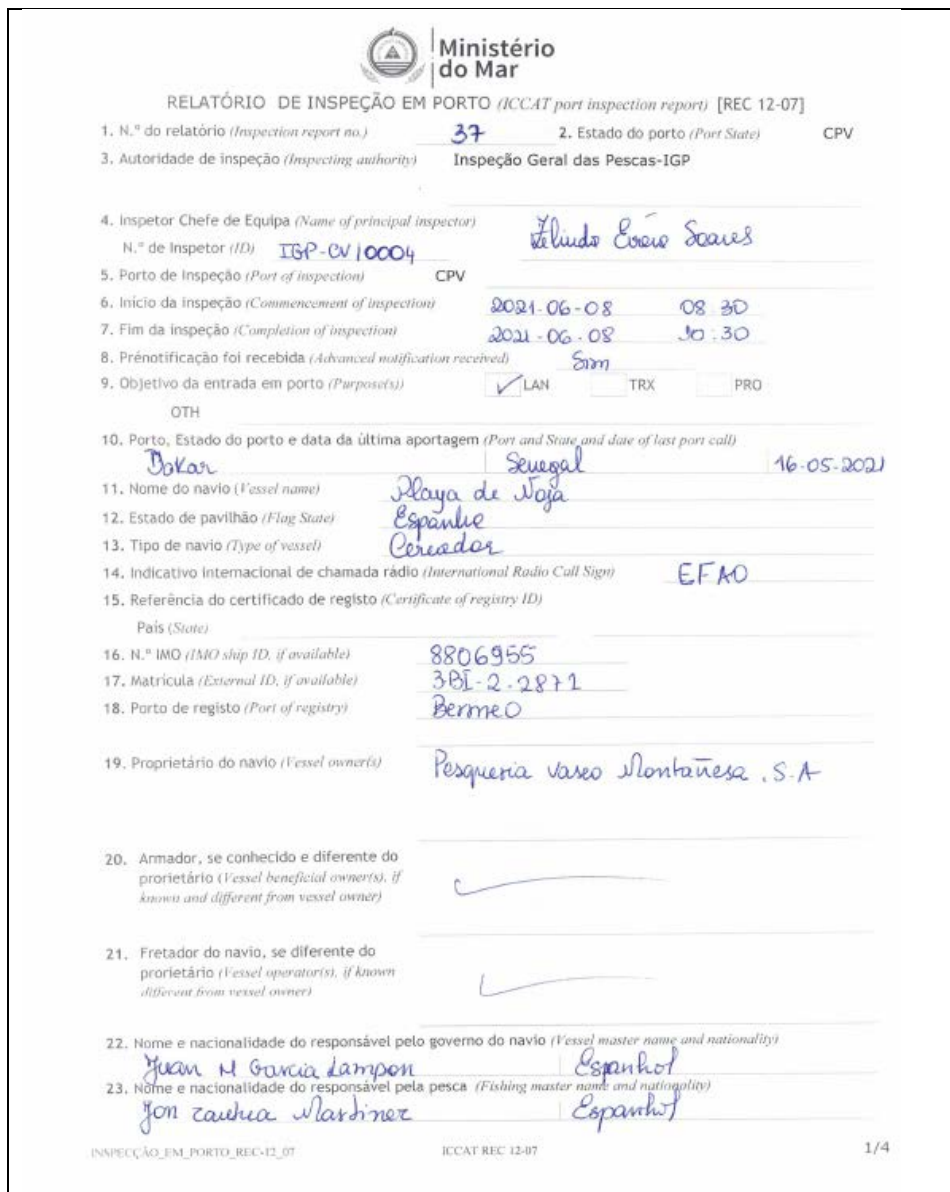 Ministério
do Mar
RELATÓRIO DE INSPEÇÃO EM PORTO (ICCAT port inspection report) [REC 12-07]
1. N.º do relatório (Inspection report no.) 37 2. Estado do porto (Port State) CPV
3. Autoridade de inspeção (Inspecting authority) Inspeção Geral das Pescas-IGP
4. Inspetor Chefe de Equipa (Name of principal inspector) Soares
N.º de Inspetor (ID) IGP-CV/0004
5. Porto de Inspeção (Port of inspection) CPV
6. Início da inspeção (Commencement of inspection) 2021-06-08 08:30
7. Fim da inspeção (Completion of inspection) 2021-06-08 10:30
8. Prénotificação foi recebida (Advanced notification received) Sim
9. Objetivo da entrada em porto (Purpose(s)) ✓ LAN TRX PRO
OTH
10. Porto, Estado do porto e data da última aportagem (Port and State and date of last port call)
Dakar Senegal 16-05-2021
11. Nome do navio (Vessel name) Playa de Noja
12. Estado de pavilhão (Flag State) Espanha
13. Tipo de navio (Type of vessel) Cercador
14. Indicativo internacional de chamada rádio (International Radio Call Sign) EFAO
15. Referência do certificado de registo (Certificate of registry ID)
País (State)
16. N.º IMO (IMO ship ID, if available) 8806955
17. Matrícula (External ID, if available) 3BI-2-2871
18. Porto de registo (Port of registry) Bermeo
19. Proprietário do navio (Vessel owner(s)) Pesqueria Vasco Montañesa, S.A
20. Armador, se conhecido e diferente do
prorietário (Vessel beneficial owner(s), if
known and different from vessel owner)
21. Fretador do navio, se diferente do
prorietário (Vessel operator(s), if known
different from vessel owner)
22. Nome e nacionalidade do responsável pelo governo do navio (Vessel master name and nationality)
Juan M Garcia Lampon Espanhol
23. Nome e nacionalidade do responsável pela pesca (Fishing master name and nationality)
Jon Martinez Espanhol
INSPECÇÃO_EM_PORTO_REC-12_07 ICCAT REC 12-07 1/4